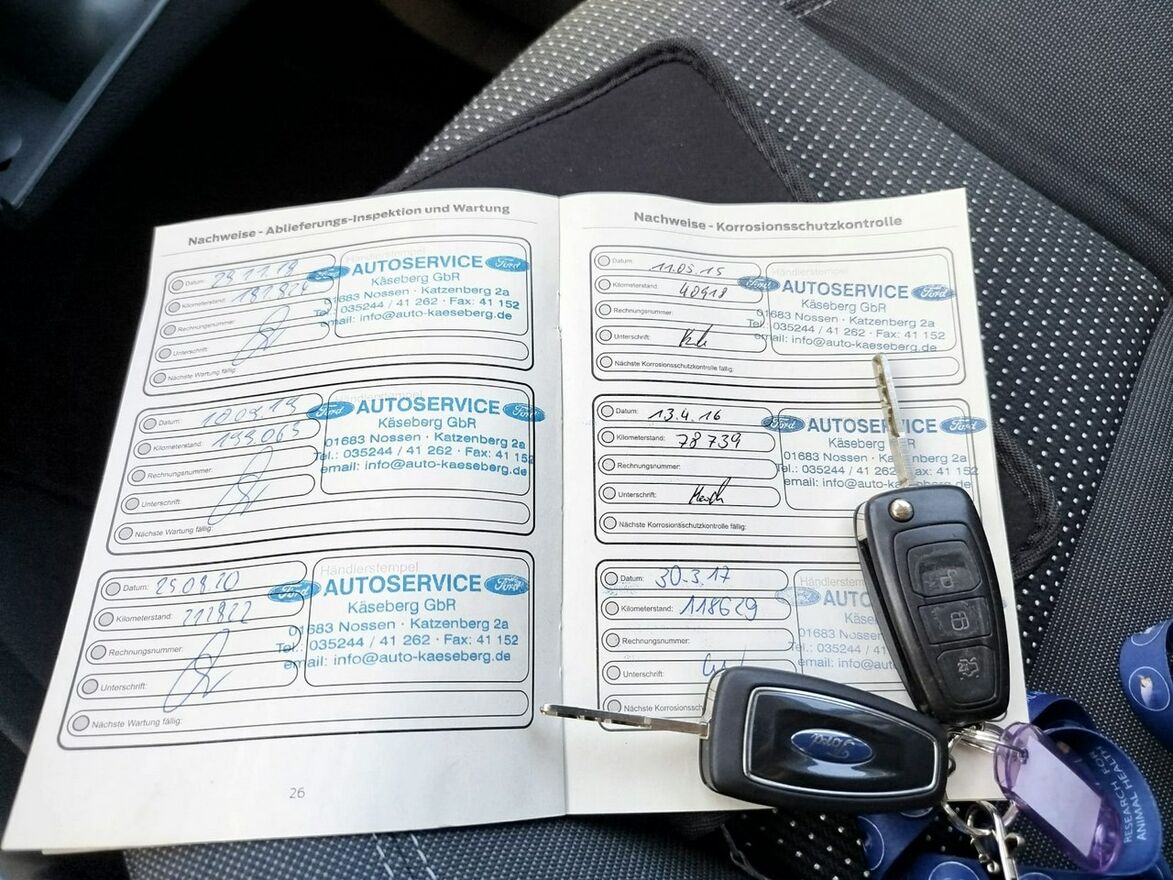 Nachweise - Ablieferungs-Inspektion und Wartung
Händlerstempel
Datum:
Kilometerstand:
Rechnungsnummer:
Unterschrift:
Nächste Wartung fällig:
Ford AUTOSERVICE Ford
Käseberg GbR
01683 Nossen · Katzenberg 2a
Tel.: 035244 / 41 262 · Fax: 41 152
email: info@auto-kaeseberg.de
Datum:
Kilometerstand: 199065
Rechnungsnummer:
Unterschrift:
Nächste Wartung fällig:
Ford AUTOSERVICE Ford
Käseberg GbR
01683 Nossen · Katzenberg 2a
Tel.: 035244 / 41 262 · Fax: 41 152
email: info@auto-kaeseberg.de
Datum: 25.08.20
Kilometerstand: 211822
Rechnungsnummer:
Unterschrift:
Nächste Wartung fällig:
Händlerstempel
Ford AUTOSERVICE Ford
Käseberg GbR
01683 Nossen · Katzenberg 2a
Tel.: 035244 / 41 262 · Fax: 41 152
email: info@auto-kaeseberg.de
26
Nachweise - Korrosionsschutzkontrolle
Datum: 11.05.15
Kilometerstand: 40918
Rechnungsnummer:
Unterschrift:
Nächste Korrosionsschutzkontrolle fällig:
Händlerstempel
Ford AUTOSERVICE Ford
Käseberg GbR
01683 Nossen · Katzenberg 2a
Tel.: 035244 / 41 262 · Fax: 41 152
email: info@auto-kaeseberg.de
Datum: 13.4.16
Kilometerstand: 78739
Rechnungsnummer:
Unterschrift:
Nächste Korrosionsschutzkontrolle fällig:
Ford AUTOSERVICE Ford
Käseberg GbR
01683 Nossen · Katzenberg 2a
Tel.: 035244 / 41 262 · Fax: 41 152
email: info@auto-kaeseberg.de
Datum: 30.3.17
Kilometerstand: 118629
Rechnungsnummer:
Unterschrift:
Nächste Korrosionssch
Händlerstem
AUTO
Käs
01683 Nossen
Tel.: 035244 / 41
email: info@
Ford
RESEARCH FOR
ANIMAL HEALTH